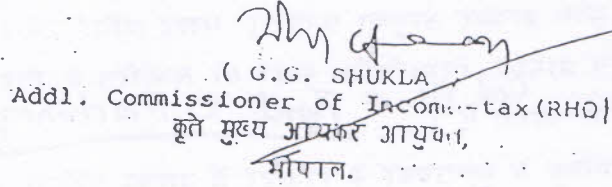 ( G.G. SHUKLA )
Addl. Commissioner of Income-tax (RHQ)
कृते मुख्य आयकर आयुक्त,
भोपाल.